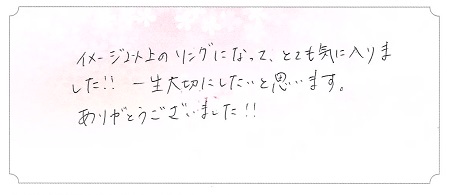 イメージ以上のリングになって、とても気に入りま
した!! 一生大切にしたいと思います。
ありがとうございました!!